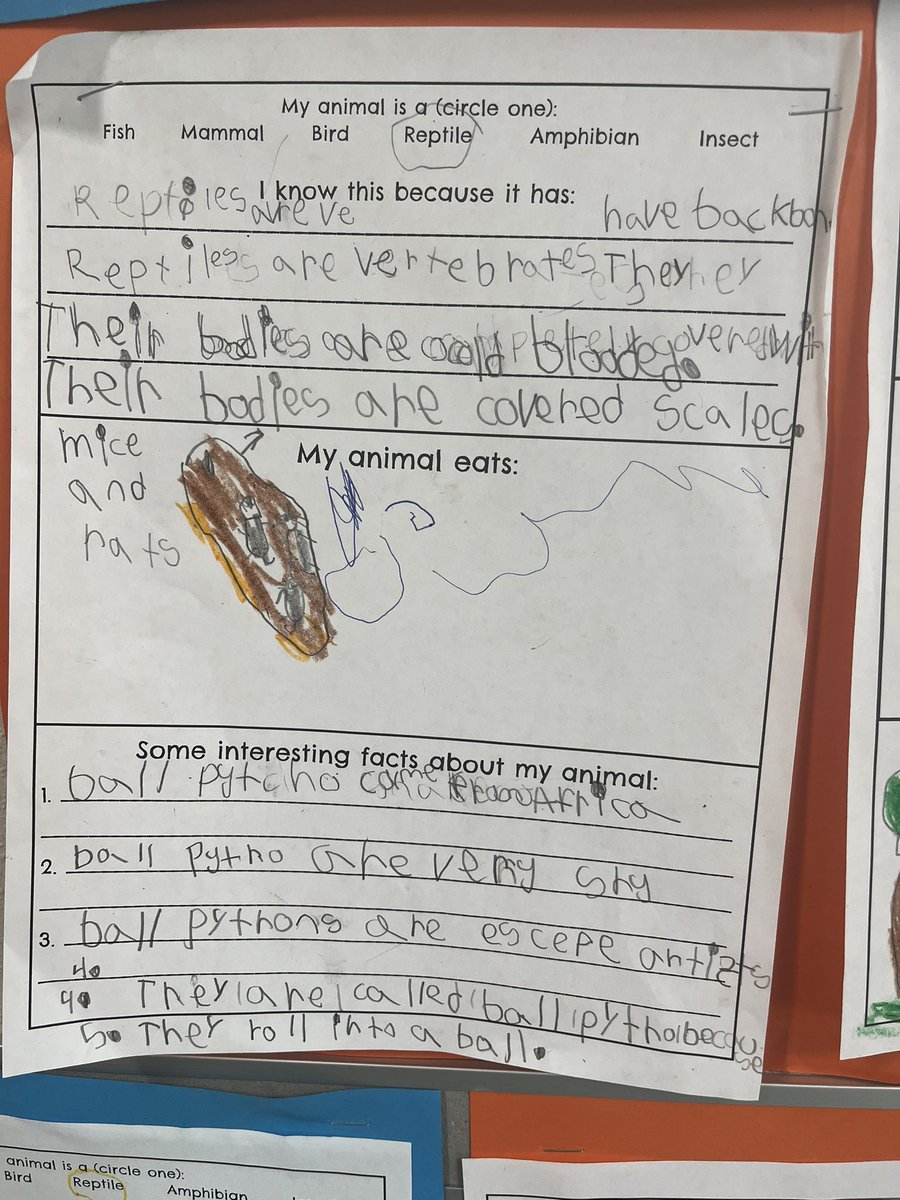 My animal is a (circle one):
Fish Mammal Bird Reptile Amphibian Insect
I know this because it has:
Reptiles are ve have backbon
Reptiles are vertebrates They
Their bodies are cold blooded covered with
Their bodies are covered scales.
My animal eats:
mice
and
rats
Some interesting facts about my animal:
1. ball pytho come from Africa
2. ball pytho are very shy
3. ball pythons are escepe artists
4.
4. They are called ball pytho because
5. They roll into a ball.
animal is a (circle one):
Bird Reptile Amphibian